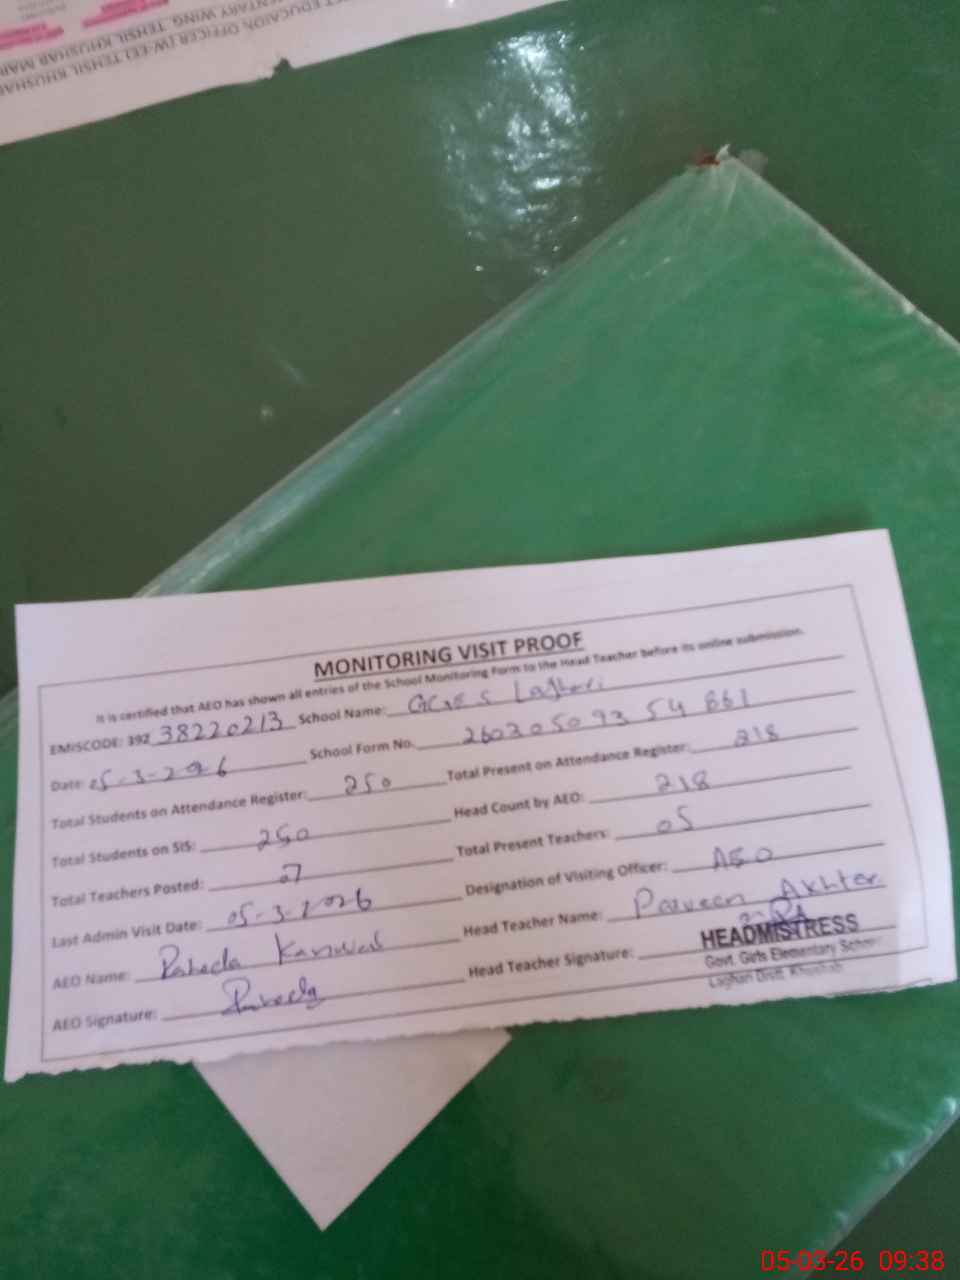 EDUCAION OFFICER (W-EE) TEHSIL KHUSHAB
MENTARY WING, TEHSIL KHUSHAB
MONITORING VISIT PROOF
It is certified that AEO has shown all entries of the School Monitoring Form to the Head Teacher before its online submission.
EMISCODE: 392 38220213 School Name: GGES Laghari
Date: 05-3-2026 School Form No. 260305093 54 861
Total Students on Attendance Register: 250 Total Present on Attendance Register: 218
Total Students on SIS: 250 Head Count by AEO: 218
Total Teachers Posted: 07 Total Present Teachers: 05
Last Admin Visit Date: 05-3-2026 Designation of Visiting Officer: AEO
AEO Name: Raheela Kanwal Head Teacher Name: Parveen Akhter
AEO Signature: Raheela Head Teacher Signature:
HEADMISTRESS
Govt. Girls Elementary School
Laghari Distt. Khushab
05-03-26 09:38